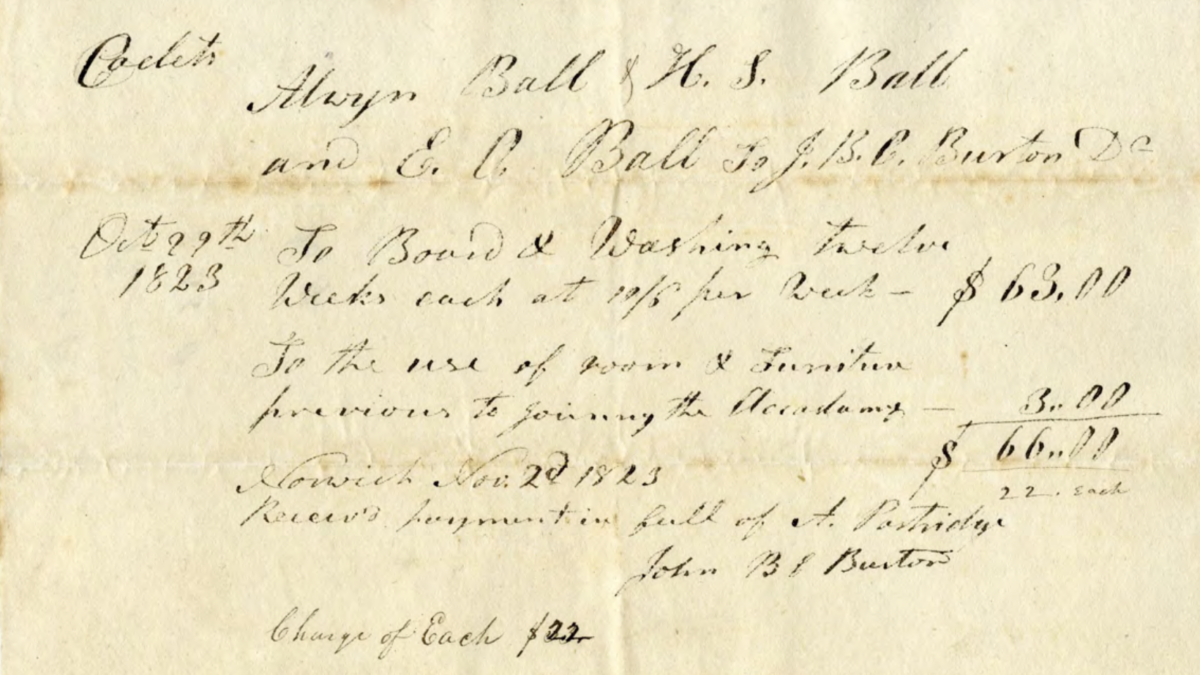 Cadets
Alwyn Ball & H. S. Ball
and E. C. Ball To J. B. C. Burton Dr
Oct 29th
1823
To Board & Washing twelve
Weeks each at 10/6 per Week – $ 63.00
To the use of room & Furniture
previous to joinnng the Accadamy – 3.00
$ 66.00
22. each
Norwich Nov. 2d 1823
Receivd payment in full of A. Partridge
John B C Burton
Charge of Each $22